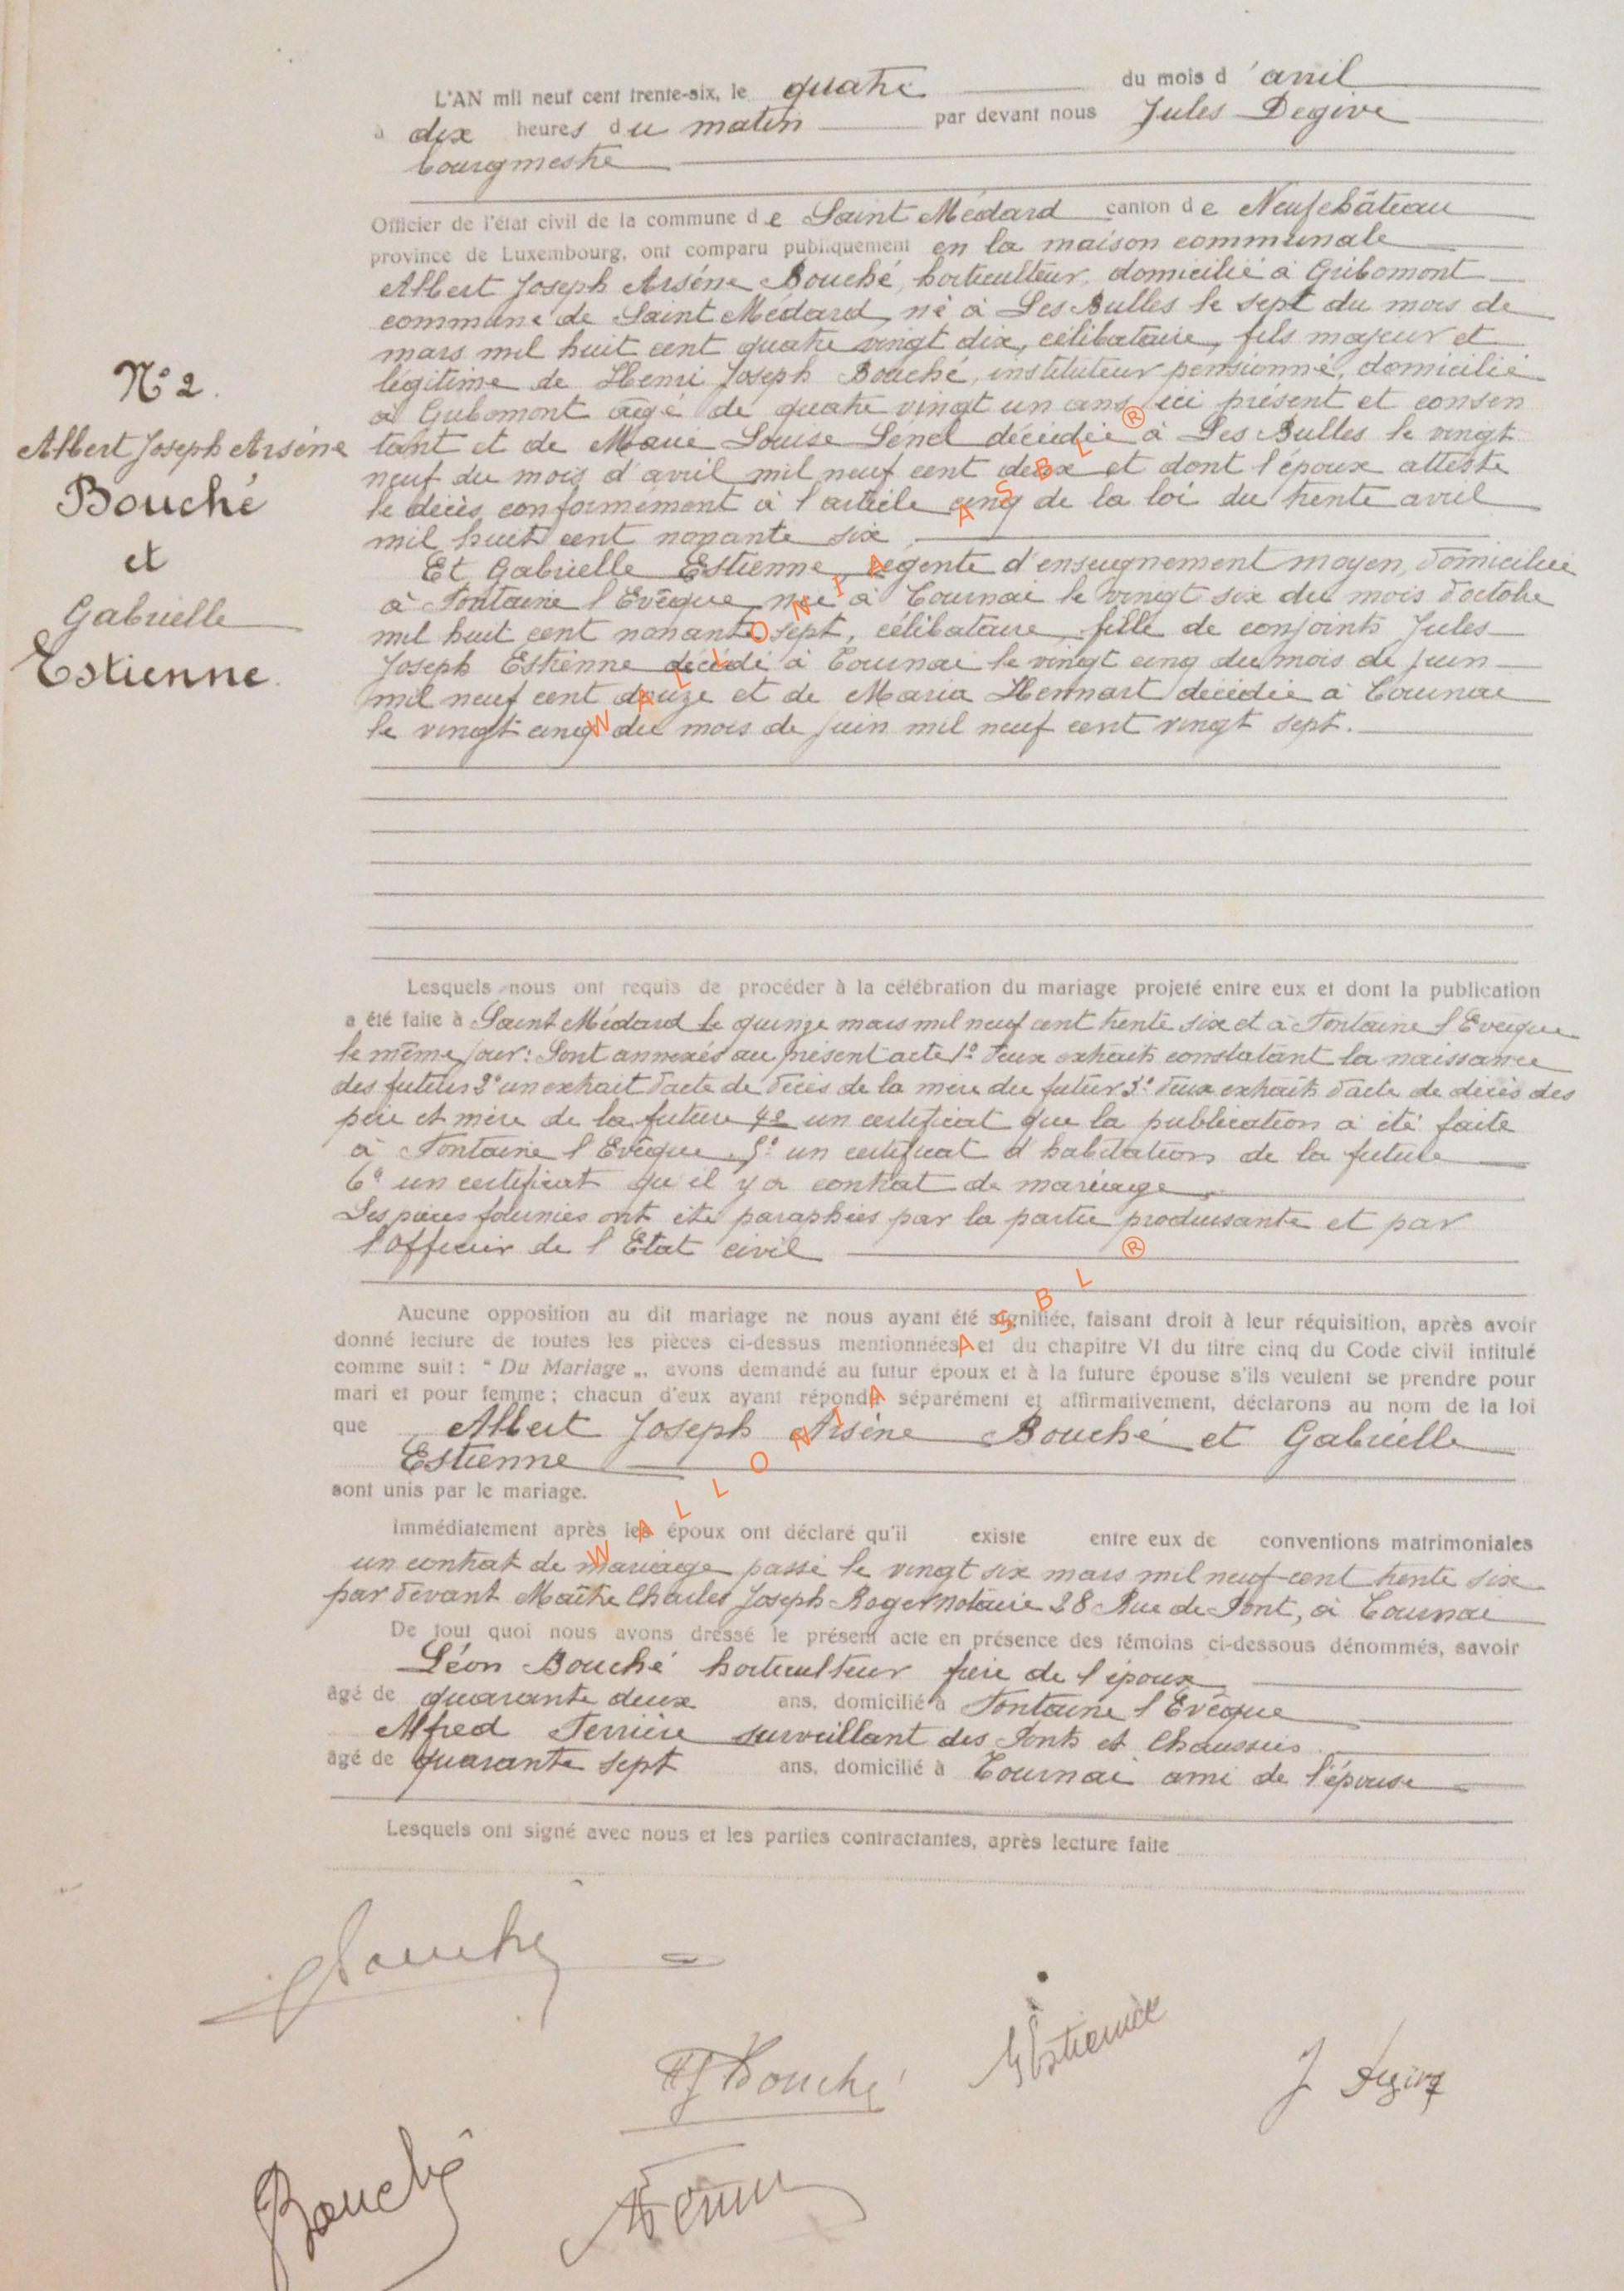 L'AN mil neuf cent trente-six, le quatre du mois d'avril
à dix heures du matin par devant nous Jules Degive
bourgmestre
Officier de l'état civil de la commune de Saint Médard canton de Neufchâteau
province de Luxembourg, ont comparu publiquement en la maison communale
Albert Joseph Arsène Bouché, horticulteur, domicilié à Gribomont
commune de Saint Médard, né à Les Bulles le sept du mois de
mars mil huit cent quatre vingt dix, célibataire, fils majeur et
légitime de Henri Joseph Bouché, instituteur pensionné, domicilié
à Gribomont âgé de quatre vingt un ans ici présent et consen
tant et de Marie Louise Lénel décédée à Les Bulles le vingt
neuf du mois d'avril mil neuf cent deux et dont l'époux atteste
le décès conformément à l'article cinq de la loi du trente avril
mil huit cent nonante six
Et Gabrielle Estienne, régente d'enseignement moyen, domiciliée
à Fontaine l'Evêque, née à Tournai le vingt six du mois d'octobre
mil huit cent nonante sept, célibataire, fille de conjoints Jules
Joseph Estienne décédé à Tournai le vingt cinq du mois de juin
mil neuf cent douze et de Maria Hennart décédée à Tournai
le vingt cinq du mois de juin mil neuf cent vingt sept.
N° 2.
Albert Joseph Arsène
Bouché
et
Gabrielle
Estienne.
Lesquels nous ont requis de procéder à la célébration du mariage projeté entre eux et dont la publication
a été faite à Saint Médard le quinze mars mil neuf cent trente six et à Fontaine l'Evêque
le même jour: Sont annexés au présent acte 1° deux extraits constatant la naissance
des futurs 2° un extrait d'acte de décès de la mère du futur 3° deux extraits d'acte de décès des
père et mère de la future 4° un certificat que la publication a été faite
à Fontaine l'Evêque. 5° un certificat d'habitation de la future
6° un certificat qu'il y a contrat de mariage.
Les pièces fournies ont été paraphées par la partie produisante et par
l'Officier de l'Etat civil
Aucune opposition au dit mariage ne nous ayant été signifiée, faisant droit à leur réquisition, après avoir
donné lecture de toutes les pièces ci-dessus mentionnées et du chapitre VI du titre cinq du Code civil intitulé
comme suit : “ Du Mariage „, avons demandé au futur époux et à la future épouse s'ils veulent se prendre pour
mari et pour femme ; chacun d'eux ayant répondu séparément et affirmativement, déclarons au nom de la loi
que Albert Joseph Arsène Bouché et Gabrielle
Estienne
sont unis par le mariage.
Immédiatement après les époux ont déclaré qu'il existe entre eux de conventions matrimoniales
un contrat de mariage passé le vingt six mars mil neuf cent trente six
par devant Maître Charles Joseph Roger notaire 28 Rue de Pont, à Tournai
De tout quoi nous avons dressé le présent acte en présence des témoins ci-dessous dénommés, savoir
Léon Bouché horticulteur frère de l'époux
âgé de quarante deux ans, domicilié à Fontaine l'Evêque
Alfred Ferrière surveillant des Ponts et Chaussées
âgé de quarante sept ans, domicilié à Tournai ami de l'épouse
Lesquels ont signé avec nous et les parties contractantes, après lecture faite
Bouché
HJ Bouché
GEstienne
J Degive
Bouché
WALLONIA ASBL ®
WALLONIA ASBL ®